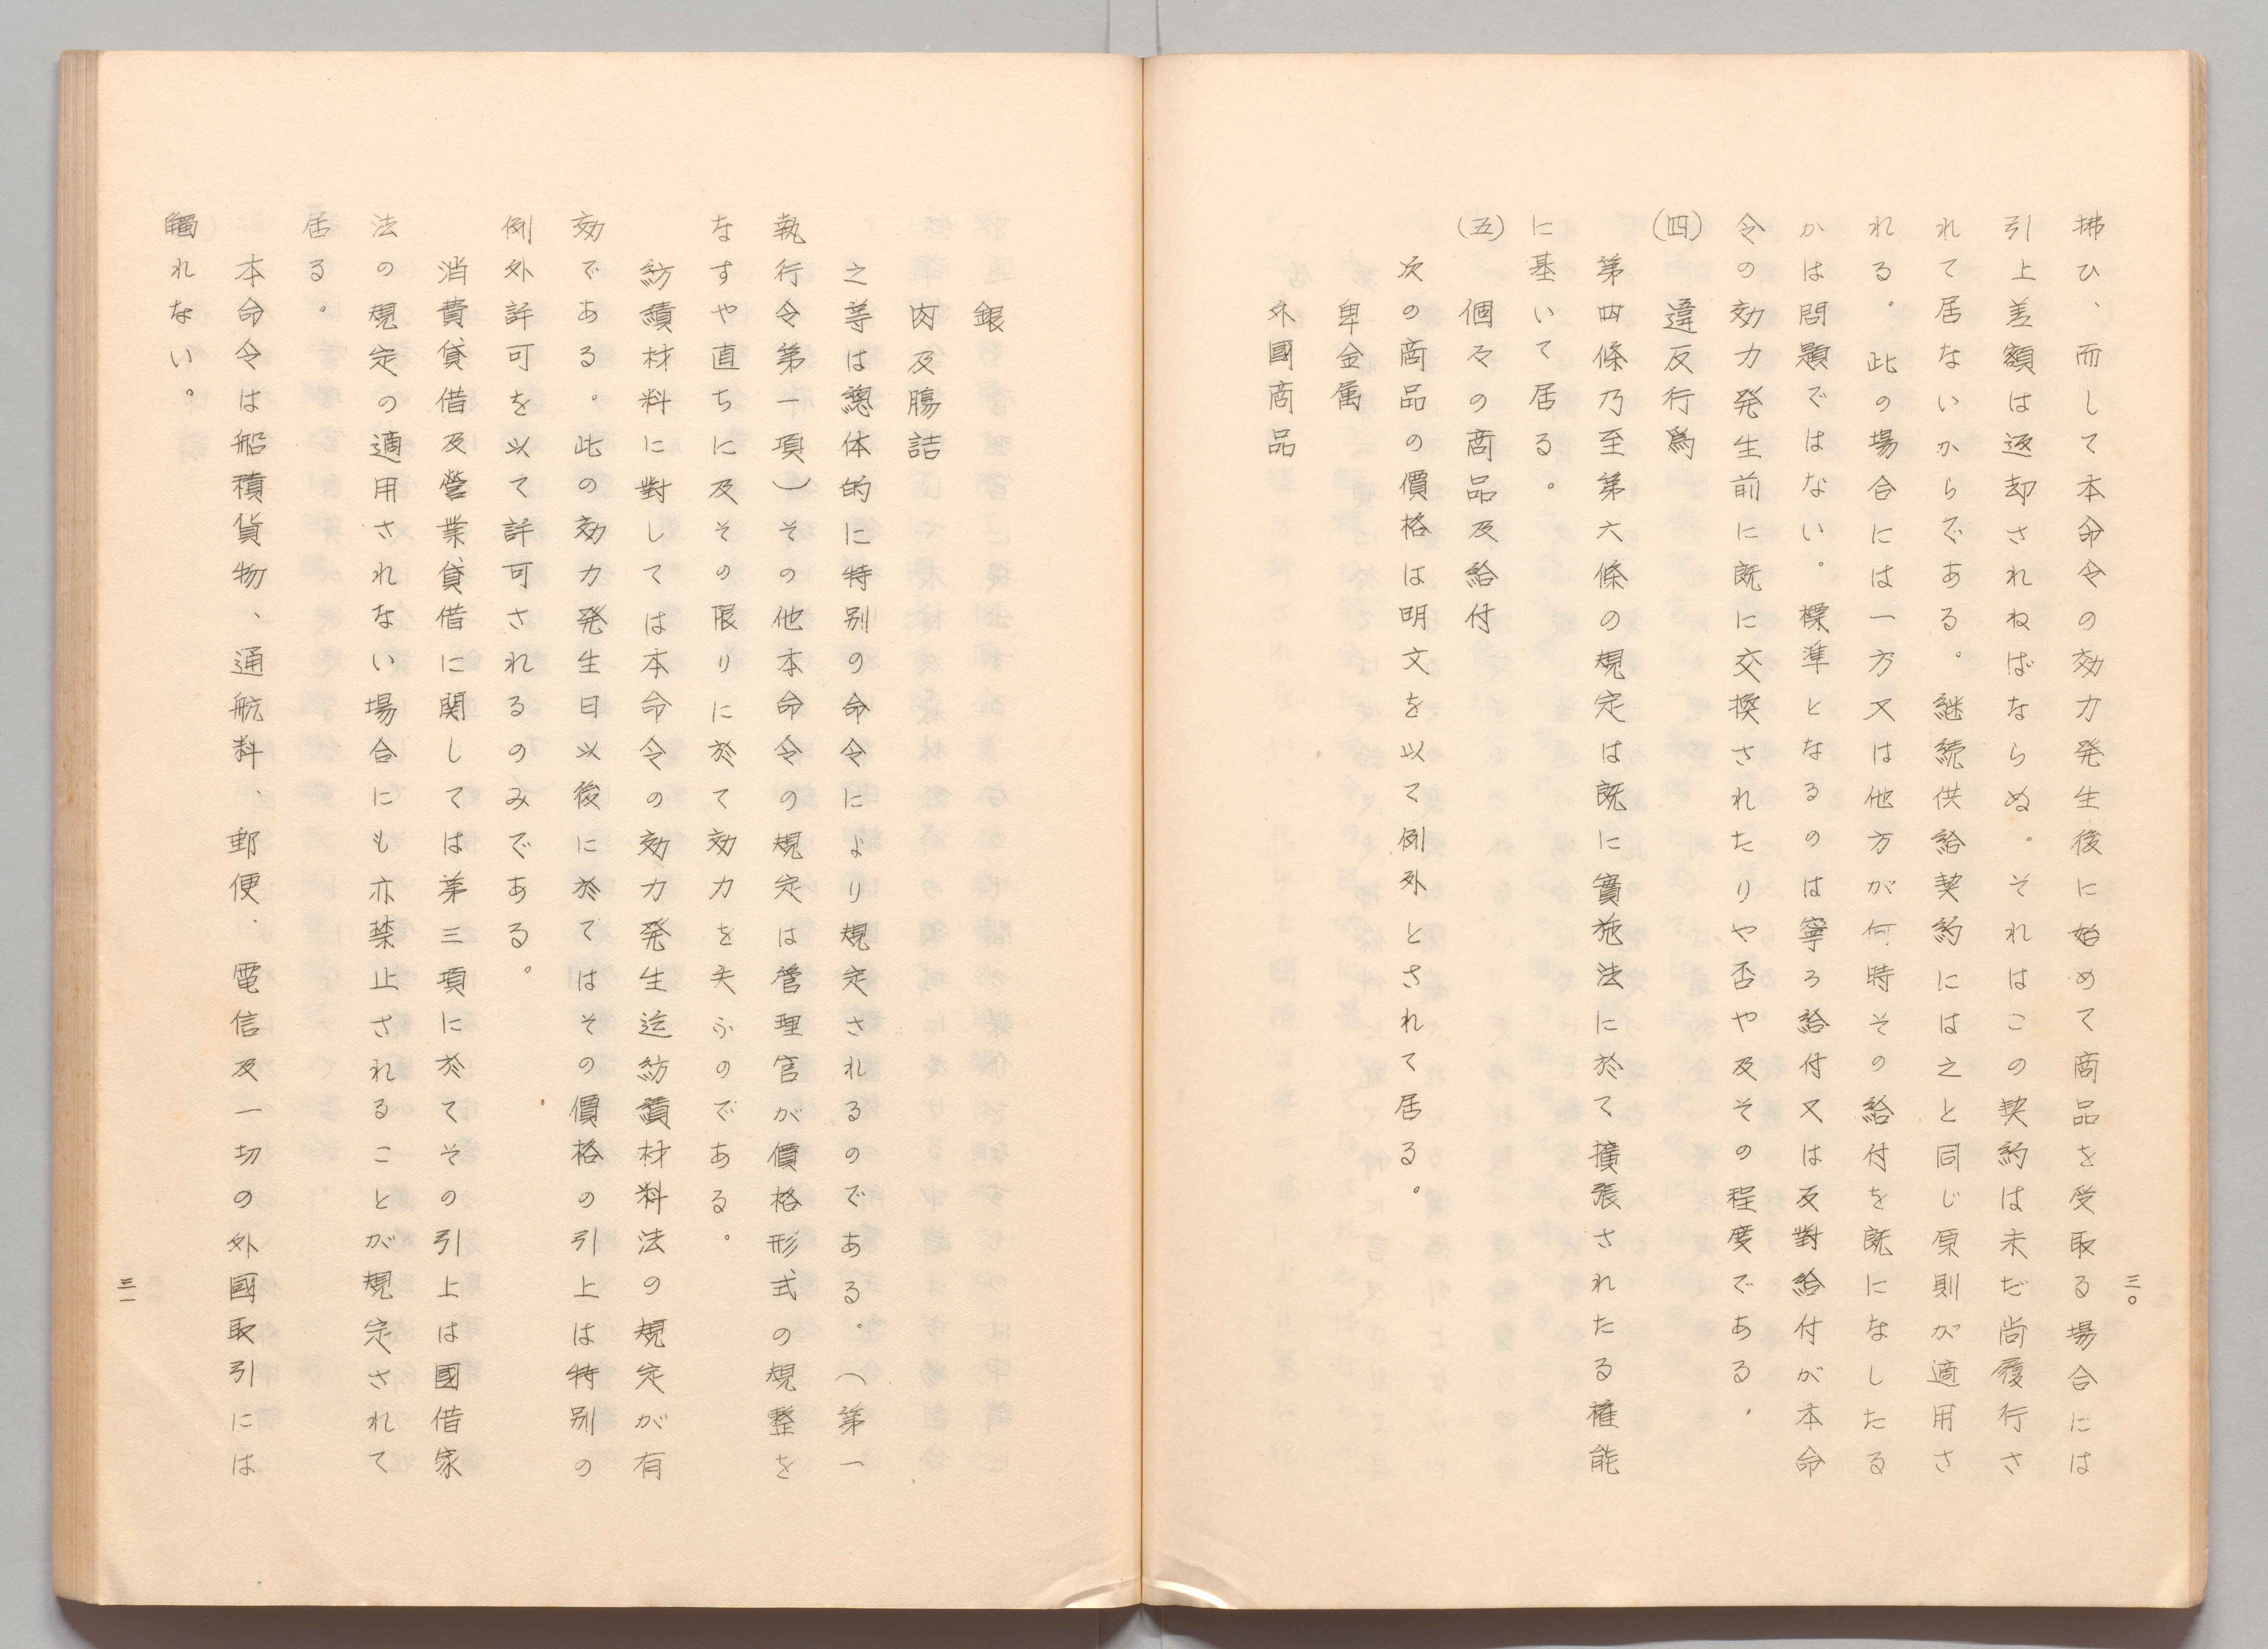 三〇
拂ひ、而して本命令の効力発生後に始めて商品を受取る場合には
引上差額は返却されねばならぬ。それはこの契約は未だ尚履行さ
れて居ないからである。継続供給契約には之と同じ原則が適用さ
れる。此の場合には一方又は他方が何時その給付を既になしたる
かは問題ではない。標準となるのは寧ろ給付又は反對給付が本命
令の効力発生前に既に交換されたりや否や及その程度である。
(四)違反行為
第四條乃至第六條の規定は既に實施法に於て擴張されたる権能
に基いて居る。
(五)個々の商品及給付
次の商品の價格は明文を以て例外とされて居る。
卑金属
外國商品
銀
肉及腸詰
之等は總体的に特別の命令により規定されるのである。(第一
執行令第一項)その他本命令の規定は管理官が價格形式の規整を
なすや直ちに及その限りに於て効力を失ふのである。
紡績材料に對しては本命令の効力発生迄紡績材料法の規定が有
効である。此の効力発生日以後に於てはその價格の引上は特別の
例外許可を以て許可されるのみである。
消費貸借及營業貸借に関しては第三項に於てその引上は國借家
法の規定の適用されない場合にも亦禁止されることが規定されて
居る。
本命令は船積貨物、通航料、郵便、電信及一切の外國取引には
觸れない。
三一